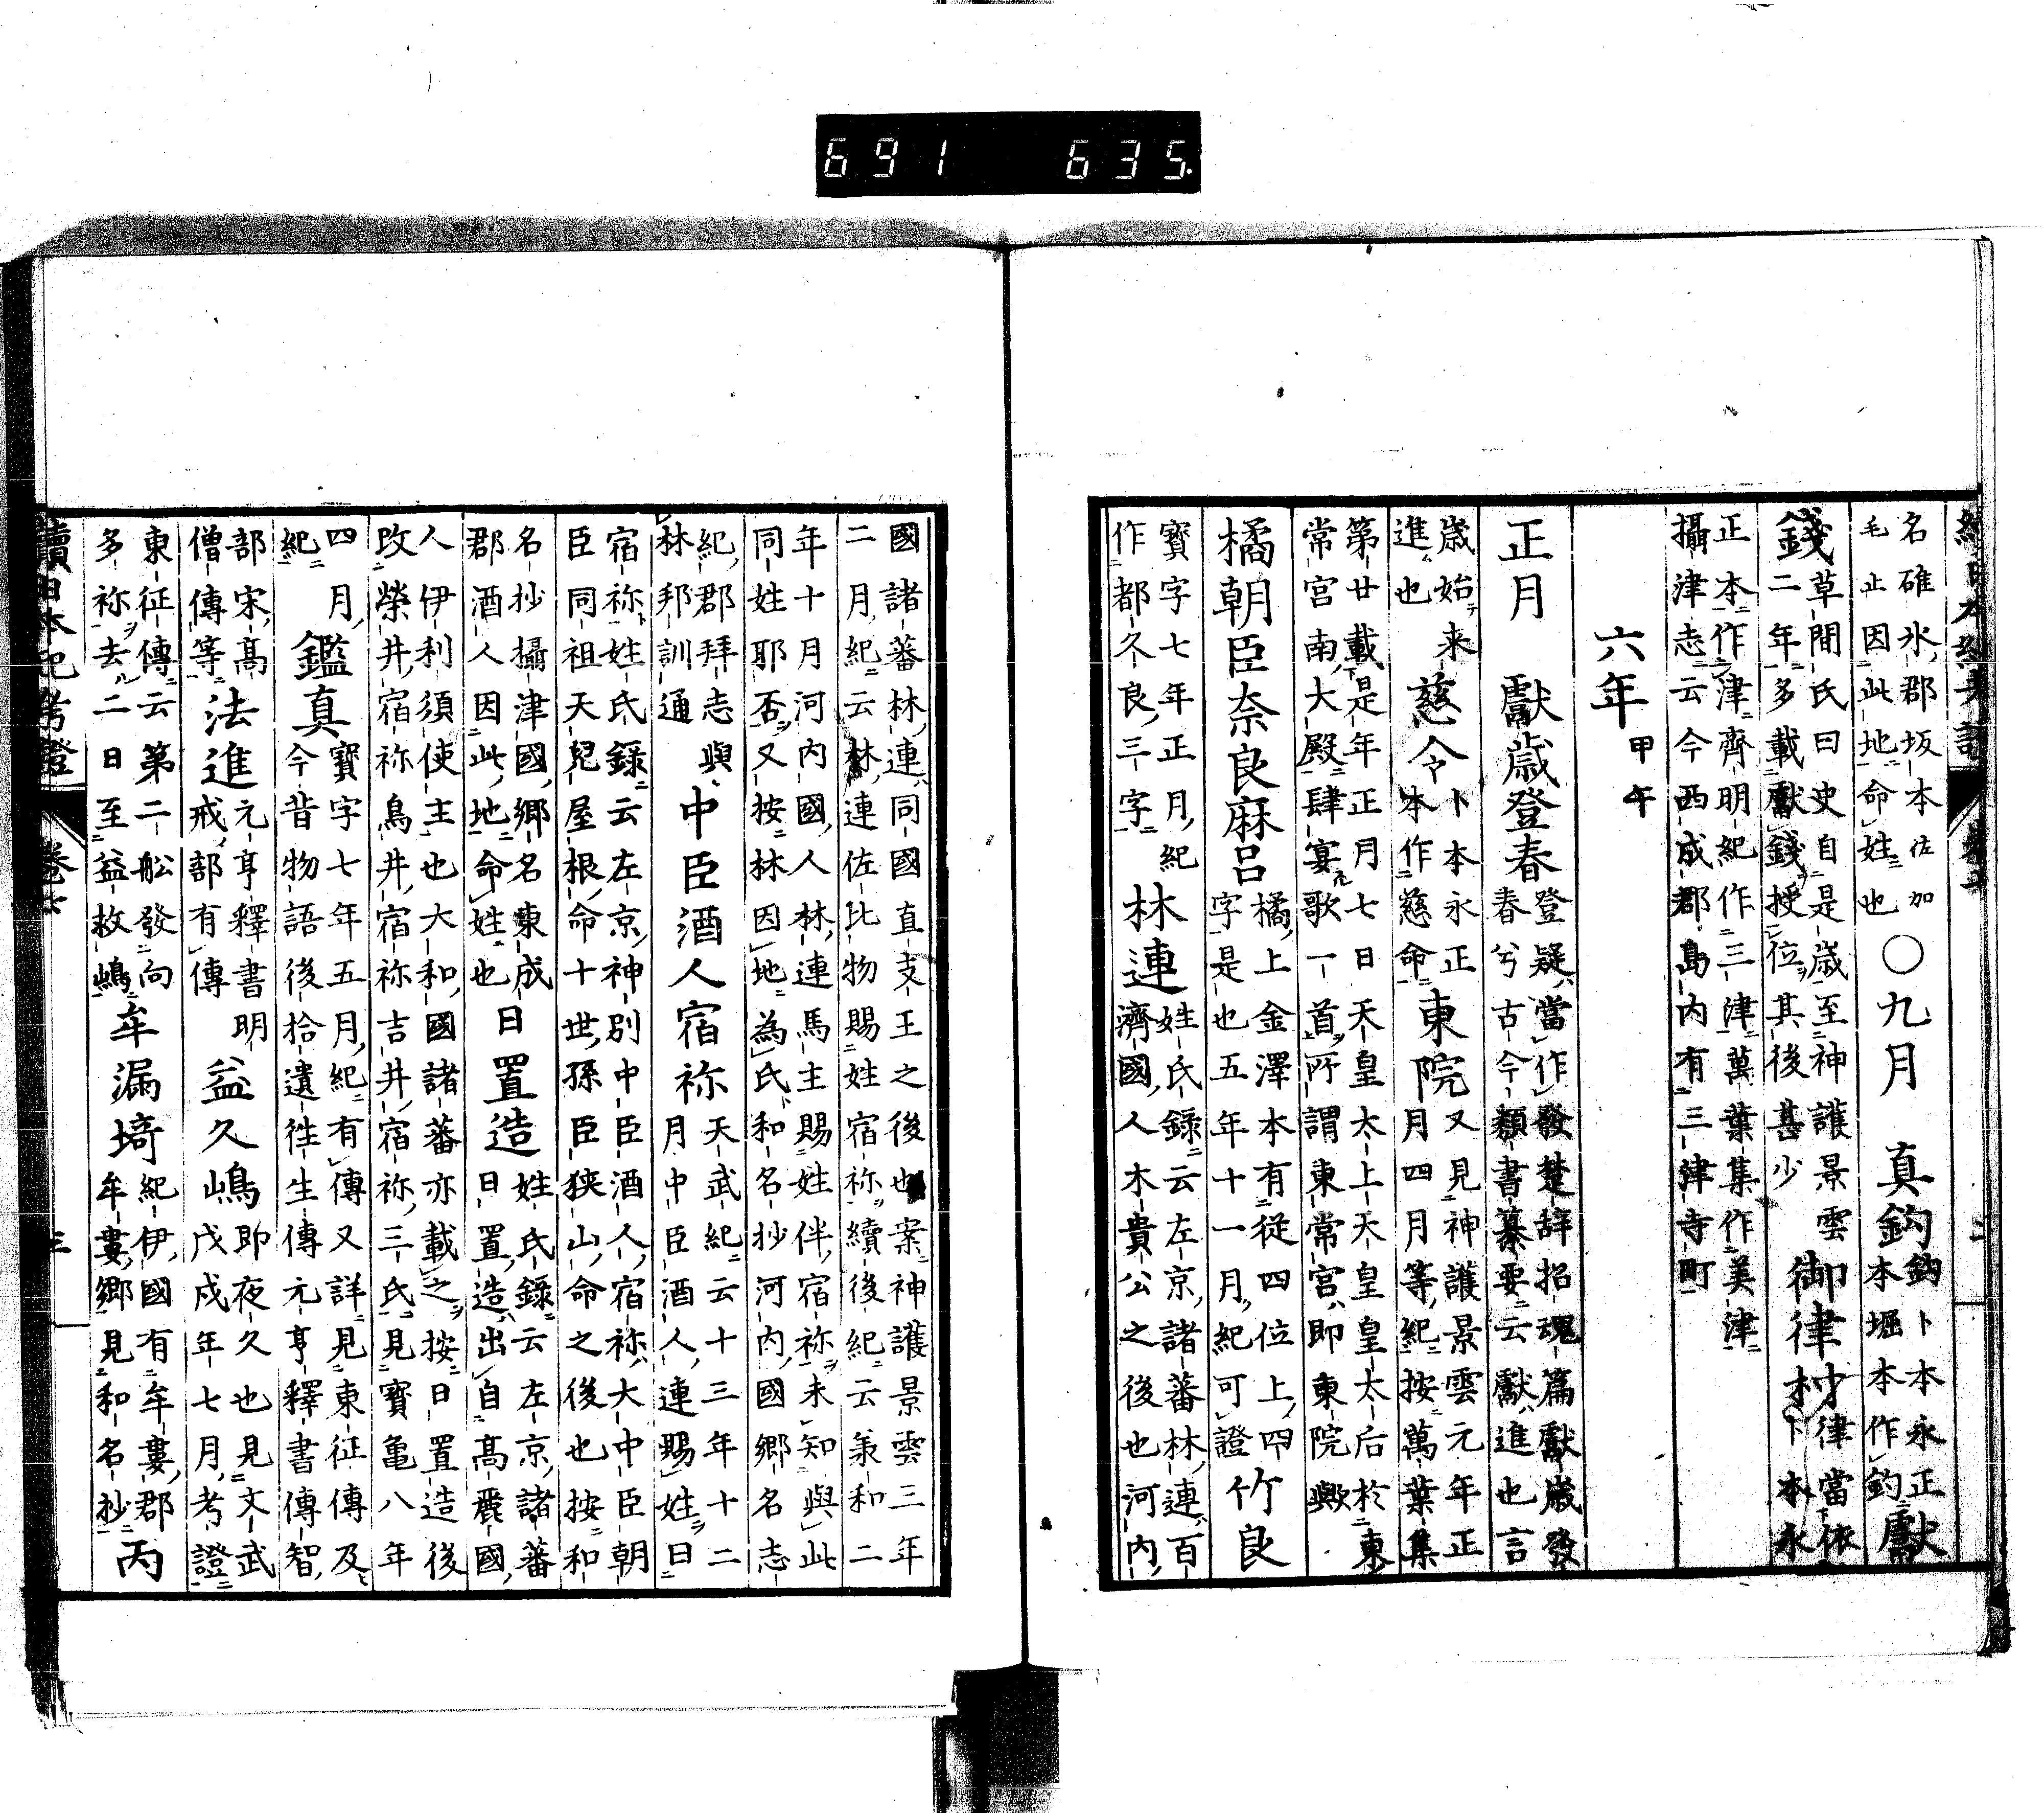 691 635.
名碓氷郡坂本佐加
毛止因此地命姓也
○九月 真鈎
鈎卜本永正
本堀本作釣
獻
錢
草間氏曰史自是歳至神護景雲
二年多載獻錢授位其後甚少
御律村
律當依
卜本永
正本作津齊明紀作三津萬葉集作美津
攝津志云今西成郡島内有三津寺町
六年甲午
正月 獻歳登春
登疑當作發楚辞招魂篇獻歳發
春兮古今類書纂要云獻進也言
歳始来
進也
慈令
卜本永正
本作慈命
東院
又見神護景雲元年正
月四月等紀按萬葉集
第廿載是年正月七日天皇太上天皇皇太后於東
常宮南大殿肆宴歌一首所謂東常宮即東院歟
橘朝臣奈良麻呂
橘上金澤本有從四位上四
字是也五年十一月紀可證
竹良
寳字七年正月紀
作都久良三字
林連
姓氏録云左京諸蕃林連百
濟國人木貴公之後也河内
國諸蕃林連同國直支王之後也案神護景雲三年
二月紀云林連佐比物賜姓宿祢續後紀云承和二
年十月河内國人林連馬主賜姓伴宿祢未知與此
同姓耶否又按林因地為氏和名抄河内國郷名志
紀郡拜志與
林邦訓通
中臣酒人宿祢
天武紀云十三年十二
月中臣酒人連賜姓曰
宿祢姓氏録云左京神別中臣酒人宿祢大中臣朝
臣同祖天兒屋根命十世孫臣狹山命之後也按和
名抄攝津國郷名東成
郡酒人因此地命姓也
日置造
姓氏録云左京諸蕃
日置造出自高麗國
人伊利須使主也大和國諸蕃亦載之按日置造後
改榮井宿祢鳥井宿祢吉井宿祢三氏見寳亀八年
四月
紀
鑑真
寳字七年五月紀有傳又詳見東征傳及
今昔物語後拾遺徃生傳元亨釋書傳智
部宗高
僧傳等
法進
元亨釋書明
戒部有傳
益久嶋
即夜久也見文武
戊戌年七月考證
東征傳云第二舩發向
多祢去二日至益救嶋
牟漏埼
紀伊國有牟婁郡
牟婁郷見和名抄
丙
續日本紀考證
卷七
三